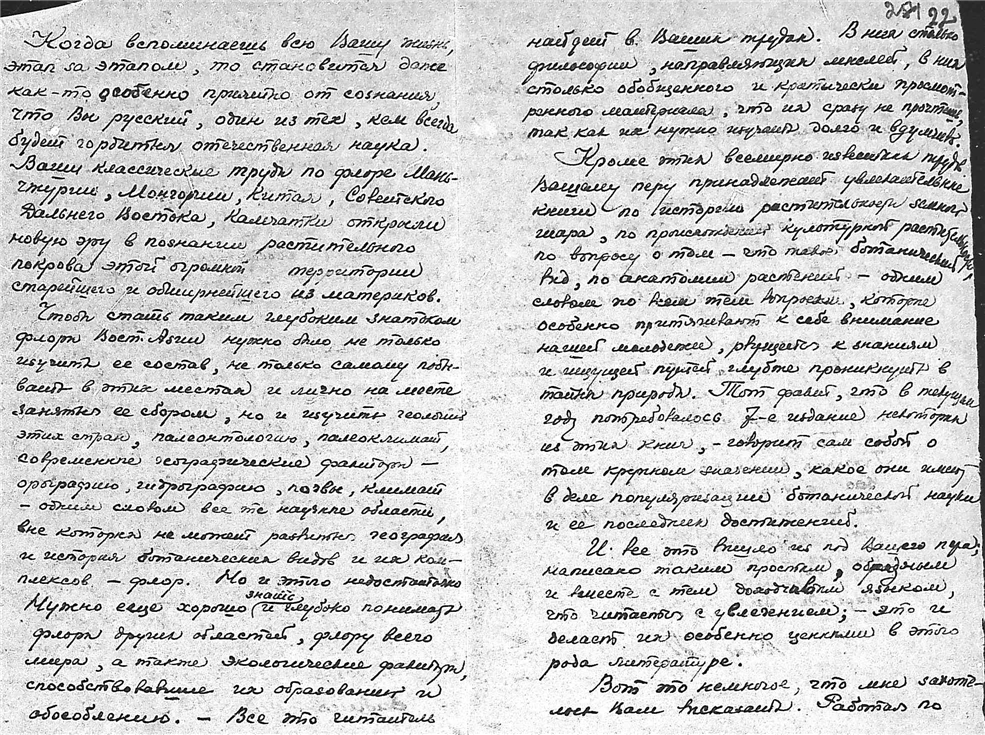 281 22
Когда вспоминаешь всю Вашу жизнь,
этап за этапом, то становится даже
как-то особенно приятно от сознания,
что Вы русский, один из тех, кем всегда
будет гордиться отечественная наука.
Ваши классические труды по флоре Мань-
чжурии, Монголии, Китая, Советского
Дальнего Востока, Камчатки открыли
новую эру в познании растительного
покрова этой огромной территории
старейшего и обширнейшего из материков.
Чтобы стать таким глубоким знатоком
флоры Вост. Азии нужно было не только
изучить ее состав, не только самому побы-
вать в этих местах и лично на месте
заняться ее сбором, но и изучить геологию
этих стран, палеонтологию, палеоклимат,
современные географические факторы —
орографию, гидрографию, почвы, климат
— одним словом все те научные области,
вне которых не может развиться география
и история ботанических видов и их ком-
плексов — флор. Но и этого недостаточно
Нужно еще хорошо знать и глубоко понимать
флоры других областей, флору всего
мира, а также экологические факторы,
способствовавшие их образованию и
обособлению. — Все это читатель
найдет в Ваших трудах. В них столько
философии, направляющих мыслей, в них
столько обобщенного и критически просмот-
ренного материала, что их сразу не прочтешь,
так как их нужно изучать долго и вдумчиво.
Кроме этих всемирно известных трудов
Вашему перу принадлежат увлекательные
книги по истории растительности земного
шара, по происхождению культурной растительности,
по вопросу о том — что такое ботанический
вид, по анатомии растений — одним
словом по всем тем вопросам, которые
особенно притягивают к себе внимание
нашей молодежи, рвущейся к знаниям
и ищущей путей глубже проникнуть в
тайны природы. Тот факт, что в текущем
году потребовалось 7-е издание некоторых
из этих книг, — говорит сам собой о
том крупном значении, какое они имеют
в деле популяризации ботанической науки
и ее последних достижений.
И все это вышло из под Вашего пера,
написано таким простым, образным
и вместе с тем доходчивым языком,
что читается с увлечением; — это и
делает их особенно ценными в этого
рода литературе.
Вот то немногое, что мне захоте-
лось Вам высказать. Работая по